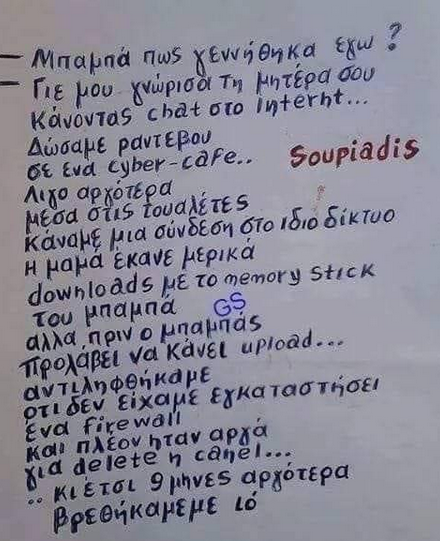 – Μπαμπά πως γεννήθηκα εγω ?
– Γιε μου γνώρισα τη μητέρα σου
κάνοντας chat στο Interht...
Δώσαμε ραντεβου
σε ενα cyber-cafe..
Soupiadis
Λιγο αργότερα
μέσα στις τουαλέτες
κάναμε μια σύνδεση στο ιδιο δίκτυο
η μαμά έκανε μερικά
downloads με το memory stick
του μπαμπά
GS
αλλα πριν ο μπαμπάς
προλάβει να κάνει upload...
αντιληφθήκαμε
οτι δεν είχαμε εγκαταστήσει
ένα firewall
και πλέον ηταν αργά
για delete η canel...
.. κι έτσι 9 μηνες αργότερα
βρεθήκαμεμε ιό